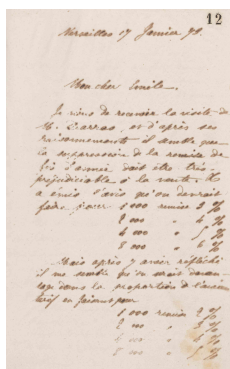 12
Marseilles 17 Janvier 98.
Mon cher Emile.
Je viens de recevoir la visite de
M. Barras, et d'après ses
raisonnements il semble que
la suppression de la remise de
fin d'année doit être très
préjudiciable à la vente. Il
a émis l'avis qu'on devrait
faire pour 1 000 remise 3 %
2 000 " 4 %
4 000 " 5 %
8 000 " 6 %
Mais après y avoir réfléchi
il me semble qu'on serait
dans la proportion de l'ancien
tarif en faisant pour
1 000 remise 2 %
2 000 " 3 %
4 000 " 4 %
8 000 " 5 %